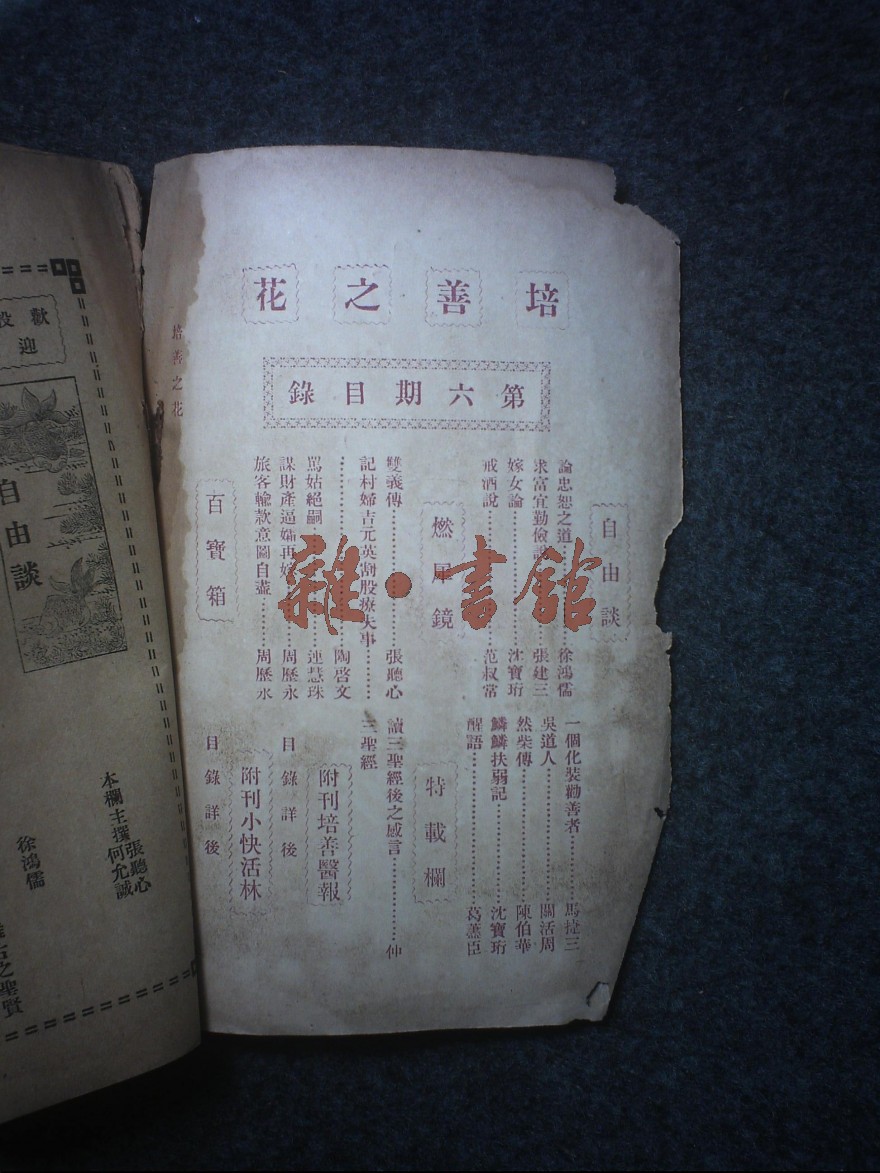 培善之花
第六期目錄
自由談
論忠恕之道……徐鴻儒
求富宜勤儉……張建三
嫁女論……沈寶珩
戒酒說……范叔常
燃犀鏡
雙義傳……張聽心
記村婦吉元英刮股療夫事……
……陶啓文
罵姑絕嗣……連慧珠
謀財產逼婦再嫁……周歷永
旅客輸款意圖自盡……周歷永
百寶箱
一個化裝勸善者……馬捷三
吳道人……關活周
然柴傳……陳伯華
鱗鱗扶弱記……沈寶珩
醒語……葛藎臣
特載欄
讀三聖經後之感言……仲
三聖經
附刊培善醫報
目錄詳後
附刊小快活林
目錄詳後
培善之花
雜·書館
歡
迎
自由談
本欄主撰
張聽心
何允誠
徐鴻儒
之聖賢